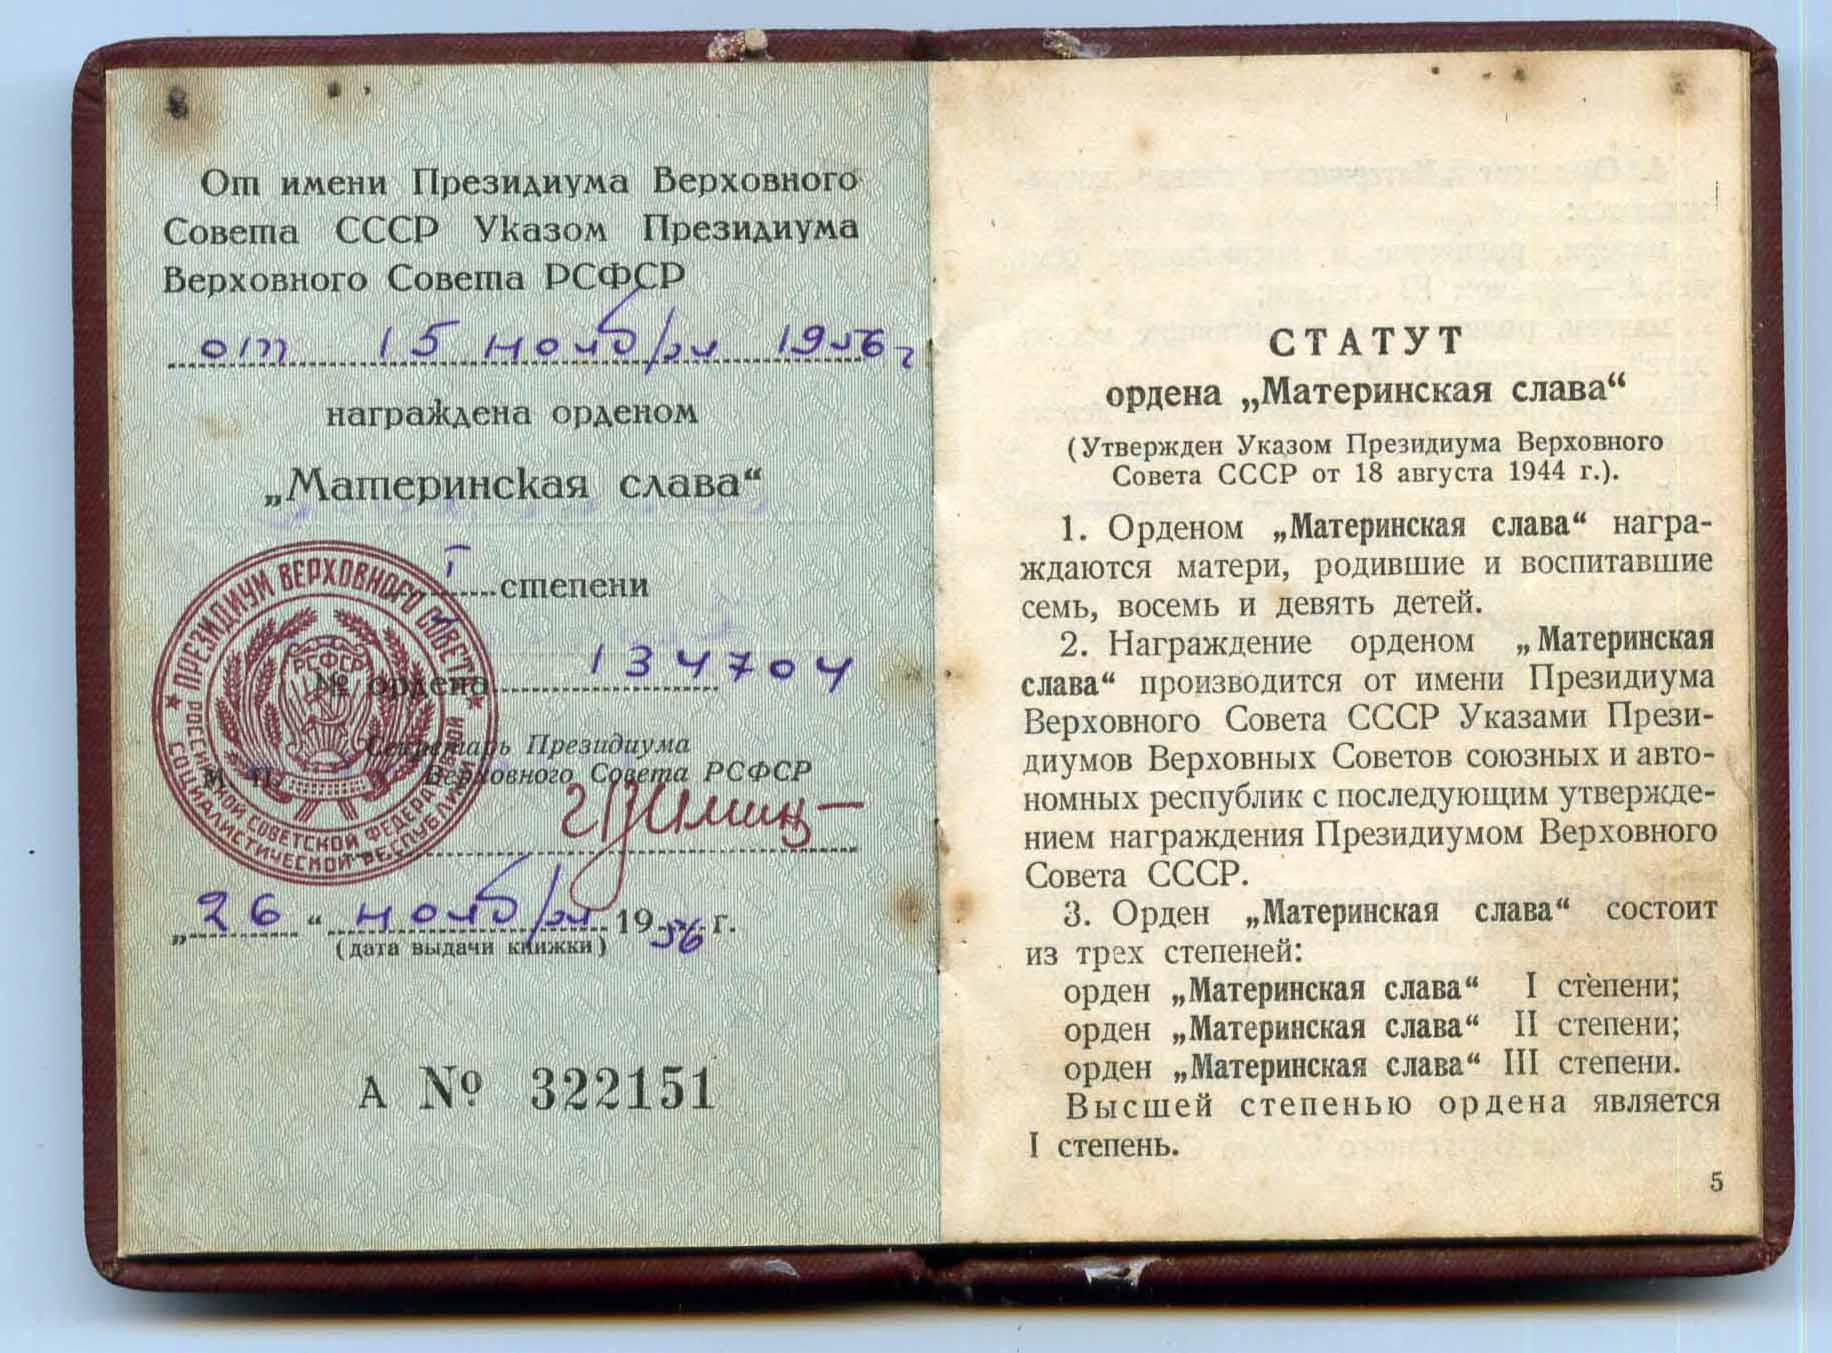 От имени Президиума Верховного
Совета СССР Указом Президиума
Верховного Совета РСФСР
от 15 ноября 1956 г
награждена орденом
„Материнская слава“
I степени
№ ордена 134704
Секретарь Президиума
М. П. Верховного Совета РСФСР
„26“ ноября 1956 г.
(дата выдачи книжки)
А № 322151
ПРЕЗИДИУМ ВЕРХОВНОГО СОВЕТА
РОССИЙСКОЙ СОВЕТСКОЙ ФЕДЕРАТИВНОЙ
СОЦИАЛИСТИЧЕСКОЙ РЕСПУБЛИКИ
РСФСР
СТАТУТ
ордена „Материнская слава“
(Утвержден Указом Президиума Верховного
Совета СССР от 18 августа 1944 г.).
1. Орденом „Материнская слава“ награ-
ждаются матери, родившие и воспитавшие
семь, восемь и девять детей.
2. Награждение орденом „Материнская
слава“ производится от имени Президиума
Верховного Совета СССР Указами Прези-
диумов Верховных Советов союзных и авто-
номных республик с последующим утвержде-
нием награждения Президиумом Верховного
Совета СССР.
3. Орден „Материнская слава“ состоит
из трех степеней:
орден „Материнская слава“ I степени;
орден „Материнская слава“ II степени;
орден „Материнская слава“ III степени.
Высшей степенью ордена является
I степень.
5